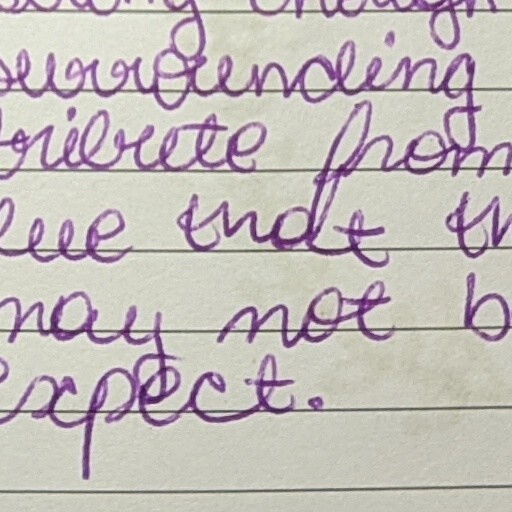 surrounding
tribute from
lue that th
may not b
expect.